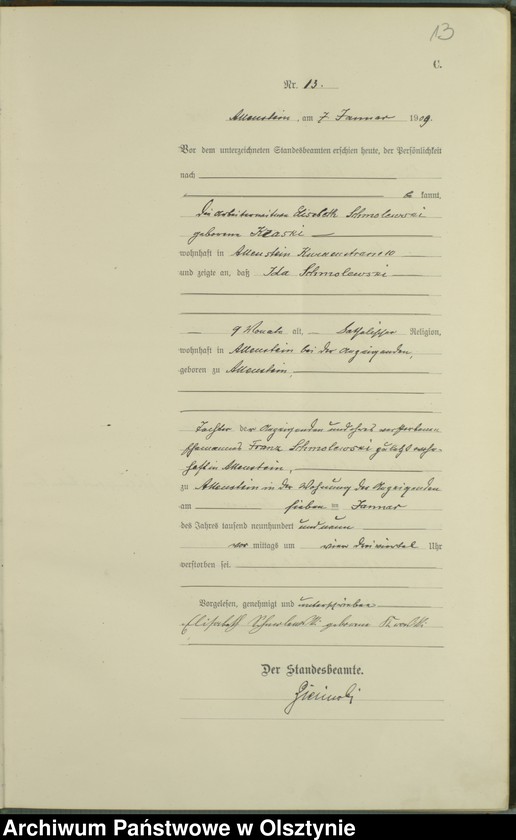 13
C.
Nr. 13.
Allenstein, am 7 Januar 1909.
Vor dem unterzeichneten Standesbeamten erschien heute, der Persönlichkeit
nach
kannt,
die Arbeiterwitwe Elisabeth Schmolewski
geborene
wohnhaft in Allenstein 10
und zeigte an, daß Ida Schmolewski
9 Monate alt, katholischer Religion,
wohnhaft in Allenstein bei der Anzeigenden,
geboren zu Allenstein,
Tochter der Anzeigenden und ihres verstorbenen
Ehemannes Franz Schmolewski zuletzt wohn-
haft in Allenstein,
zu Allenstein in der Wohnung der Anzeigenden
am sieben ten Januar
des Jahres tausend neunhundert und neun
vor mittags um vier dreiviertel Uhr
verstorben sei.
Vorgelesen, genehmigt und unterschrieben
Elisabeth geborene
Der Standesbeamte.
Archiwum Państwowe w Olsztynie